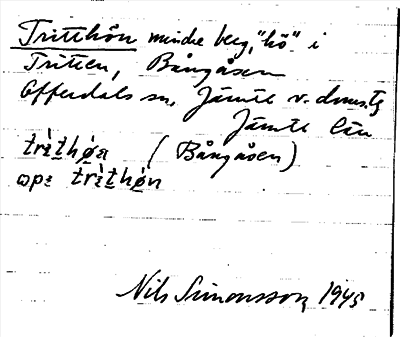 Tritthön mindre berg, "hö" i
Tritten, Bångåsen
Offerdals sn, Jämtl v. doms.tg
Jämtl län
trìthø̀n (Bångåsen)
opå trìthø̀n
Nils Simonsson 1945